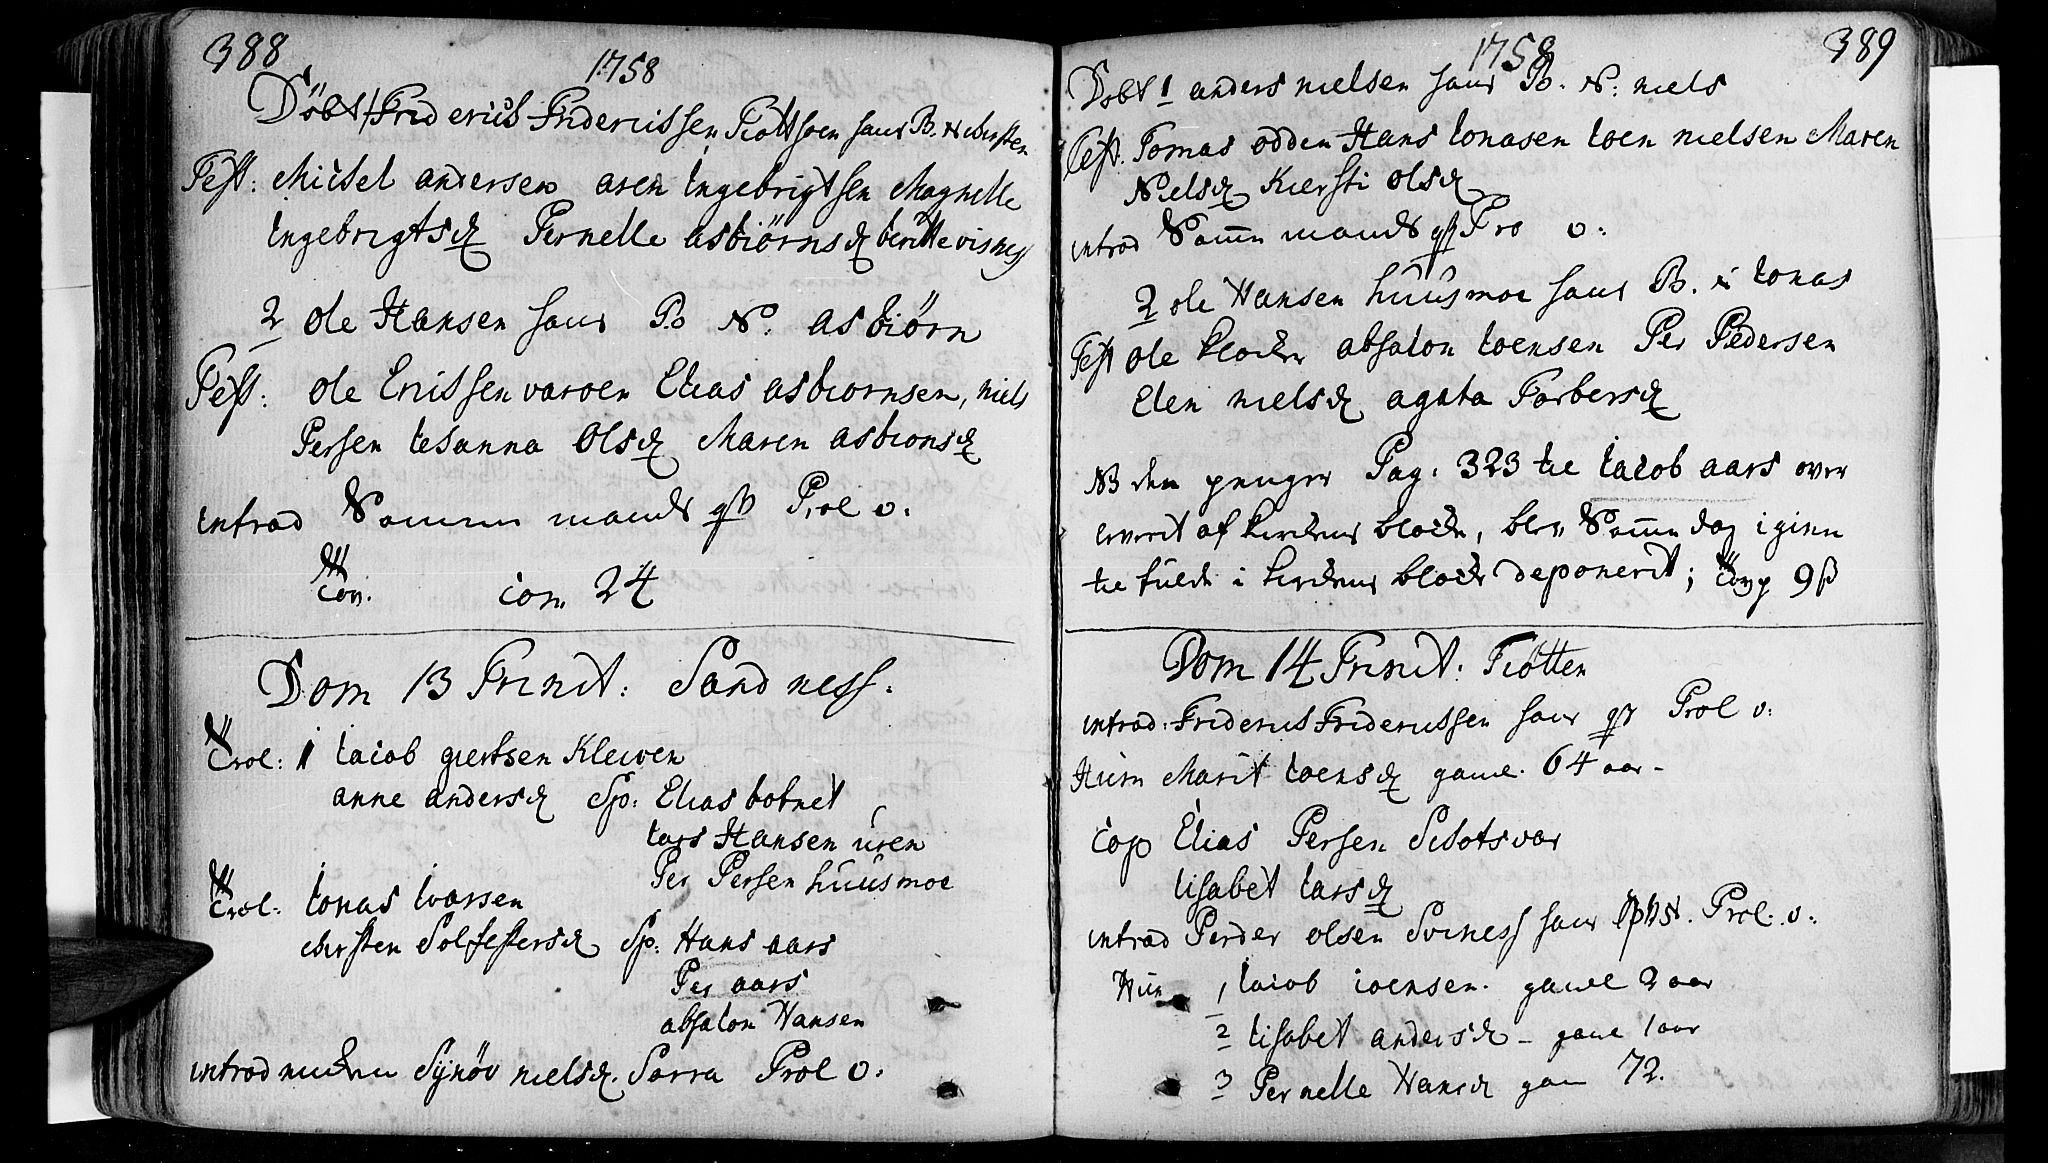 388
1758
Döbt 1 Friderics Fridericssen Tiøttoen haus B. N. kirsten
Test: Michel andersen aren Ingebrigtsen Magnelle
Ingebrigtsd Pernelle asbiörnsd beritte visnes
2 ole Hansen haus B. N. asbiörn
Test: ole Erichssen varoen Elias asbiornsen, niels
Persen Iesanna Olsd Maren asbionsd
introd Samme mands qv Prol o.
con. 24
Dom 13 Trinit: Sandness.
Trol: 1 Iacob giertsen Kleiven
anne andersd Sp: Elias botnet
Lars Hansen uren
Per Persen huusmoe
Trol: Ionas Ivarsen
kirsten Solfestersd Sp: Hans aars
Per aars
absalon Hansen
introd Synöv nielsd. Sarra Prol o.
389
1758
Döbt 1 anders nielsen haus B. N: niels
Test. Tomas odden Hans Ionasen Ioen nielsen Maren
Nielsd Kiersti olsd
introd Samme mands qv Pro o:
2 ole Hansen huusmoe haus B. N Ionas
Test ole klocker absalon Ioensen Per Pedersen
Elen nielsd agata Torbersd
NB den penger Pag. 323 til Iacob aars over
leverit af kirkens block, blev Samme dag igien
til fulde i kirkens block deponerit; 9 ß
Dom 14 Trinit: Tiötten
introd: Friderics Fridericssen haus qv Prol o:
Hum Marit Ioensd gamel. 64 aar -
Cop Elias Persen Schotsvar
Lisabet Larsd
introd Perder olsen Svines haus Prol. o.
Hum 1 Iacob ioensen. gamel 2 aar
2 Lisabet andersd - game 1 aar
3 Pernelle Hansd gam 72.